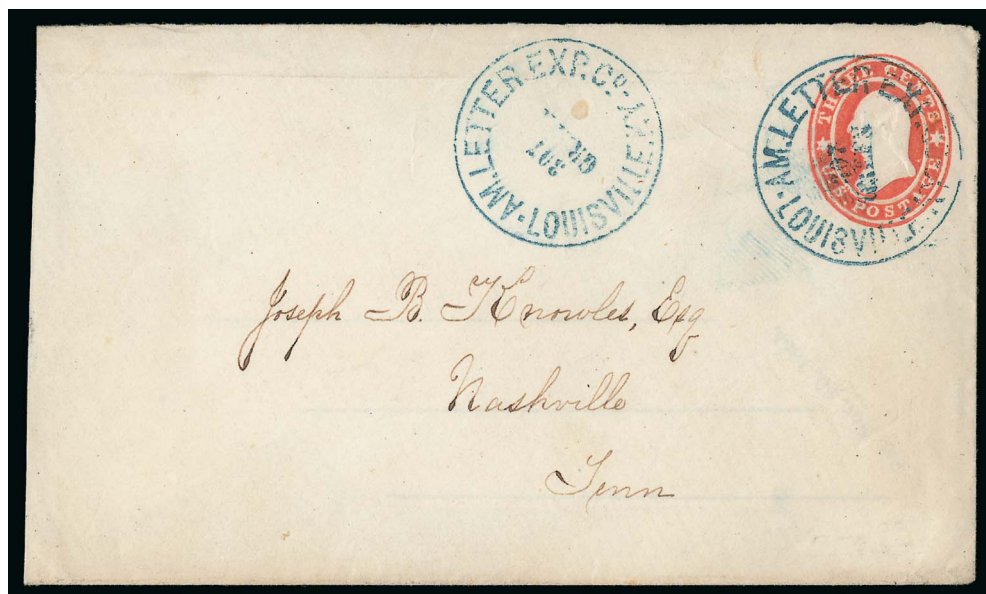 AM. LETTER. EXP. Co. LOUISVILLE. KY.
AM. LETTER EXP. LOUISVILLE
THREE CENTS
U.S. POSTAGE
Joseph B. Knowles, Esq
Nashville
Tenn